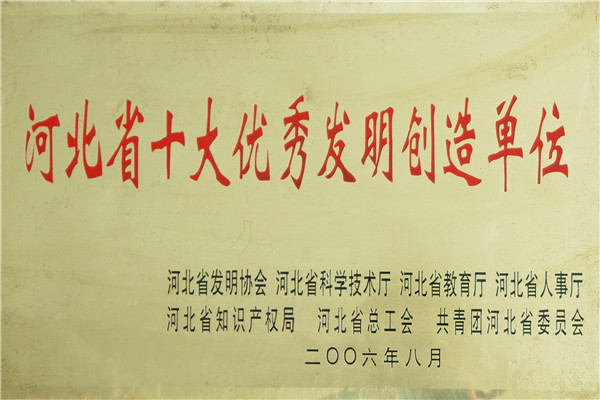 河北省十大优秀发明创造单位
河北省发明协会 河北省科学技术厅 河北省教育厅 河北省人事厅
河北省知识产权局 河北省总工会 共青团河北省委员会
二〇〇六年八月